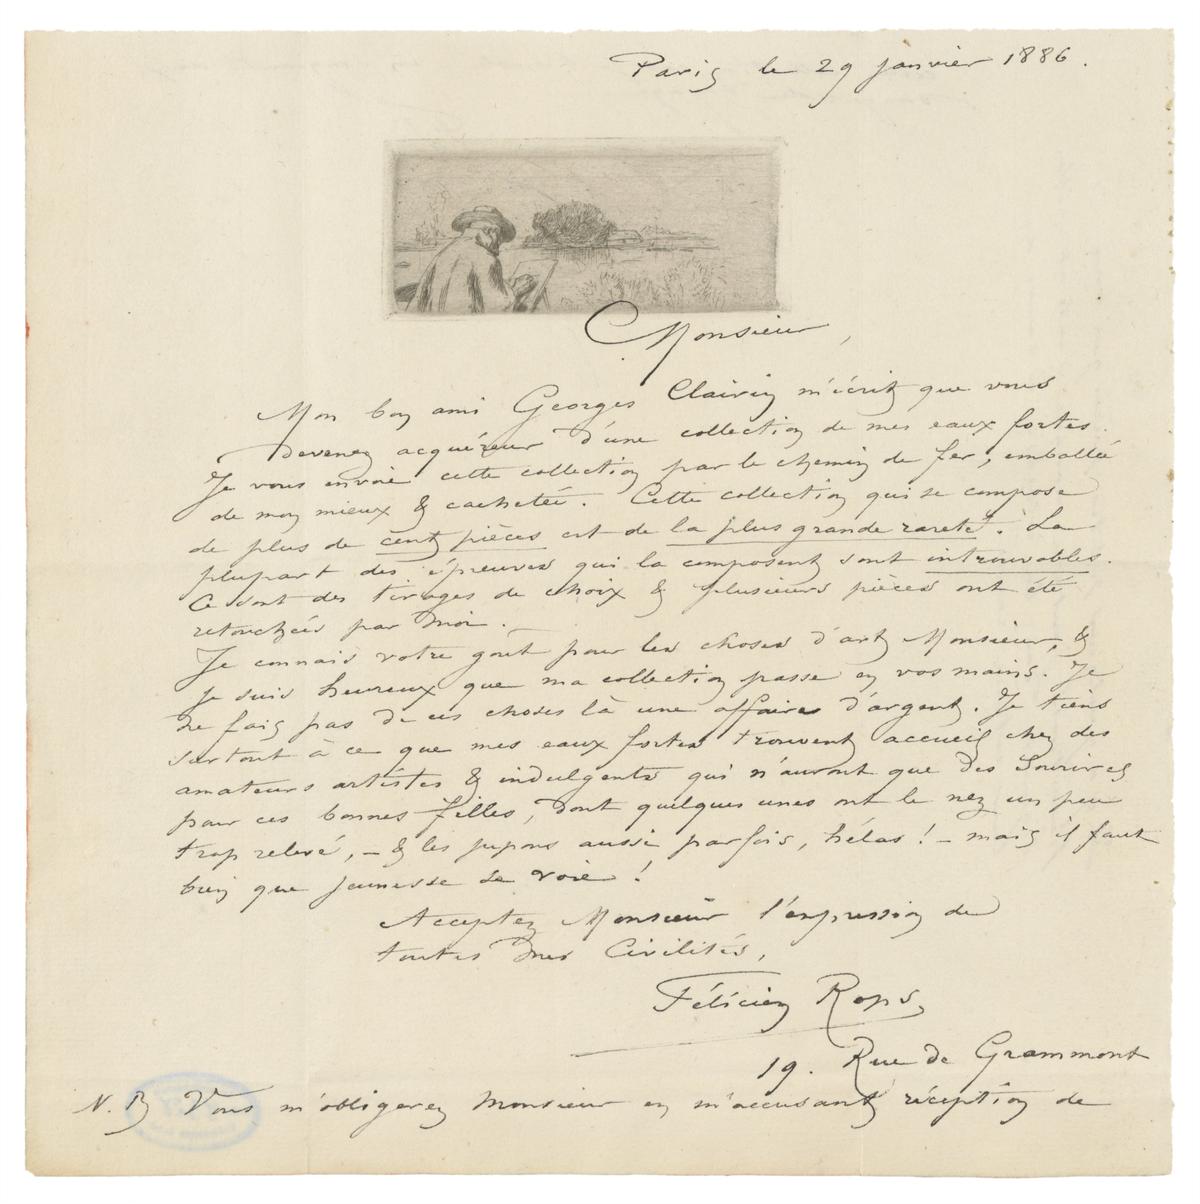 Paris le 29 janvier 1886.
Monsieur,
Mon bon ami Georges Clairin m'écrit que vous
devenez acquéreur d'une collection de mes eaux fortes.
Je vous envoie cette collection par le chemin de fer, emballée
de mon mieux & cachetée. Cette collection qui se compose
de plus de cent pièces est de la plus grande rareté. La
plupart des épreuves qui la composent sont introuvables.
Ce sont des tirages de choix & plusieurs pièces ont été
retouchées par moi.
Je connais votre goût pour les choses d'art Monsieur, &
je suis heureux que ma collection passe en vos mains. Je
ne fais pas de ces choses là une affaire d'argent. Je tiens
surtout à ce que mes eaux fortes trouvent accueil chez des
amateurs artistes & indulgents qui n'auront que des sourires
pour ces bonnes filles, dont quelques unes ont le nez un peu
trop relevé, – & les jupons aussi parfois, hélas! – mais il faut
bien que jeunesse se voie!
Acceptez Monsieur l'expression de
toutes mes civilités,
Félicien Rops
19. Rue de Grammont
N.B Vous m'obligerez Monsieur en m'accusant réception de